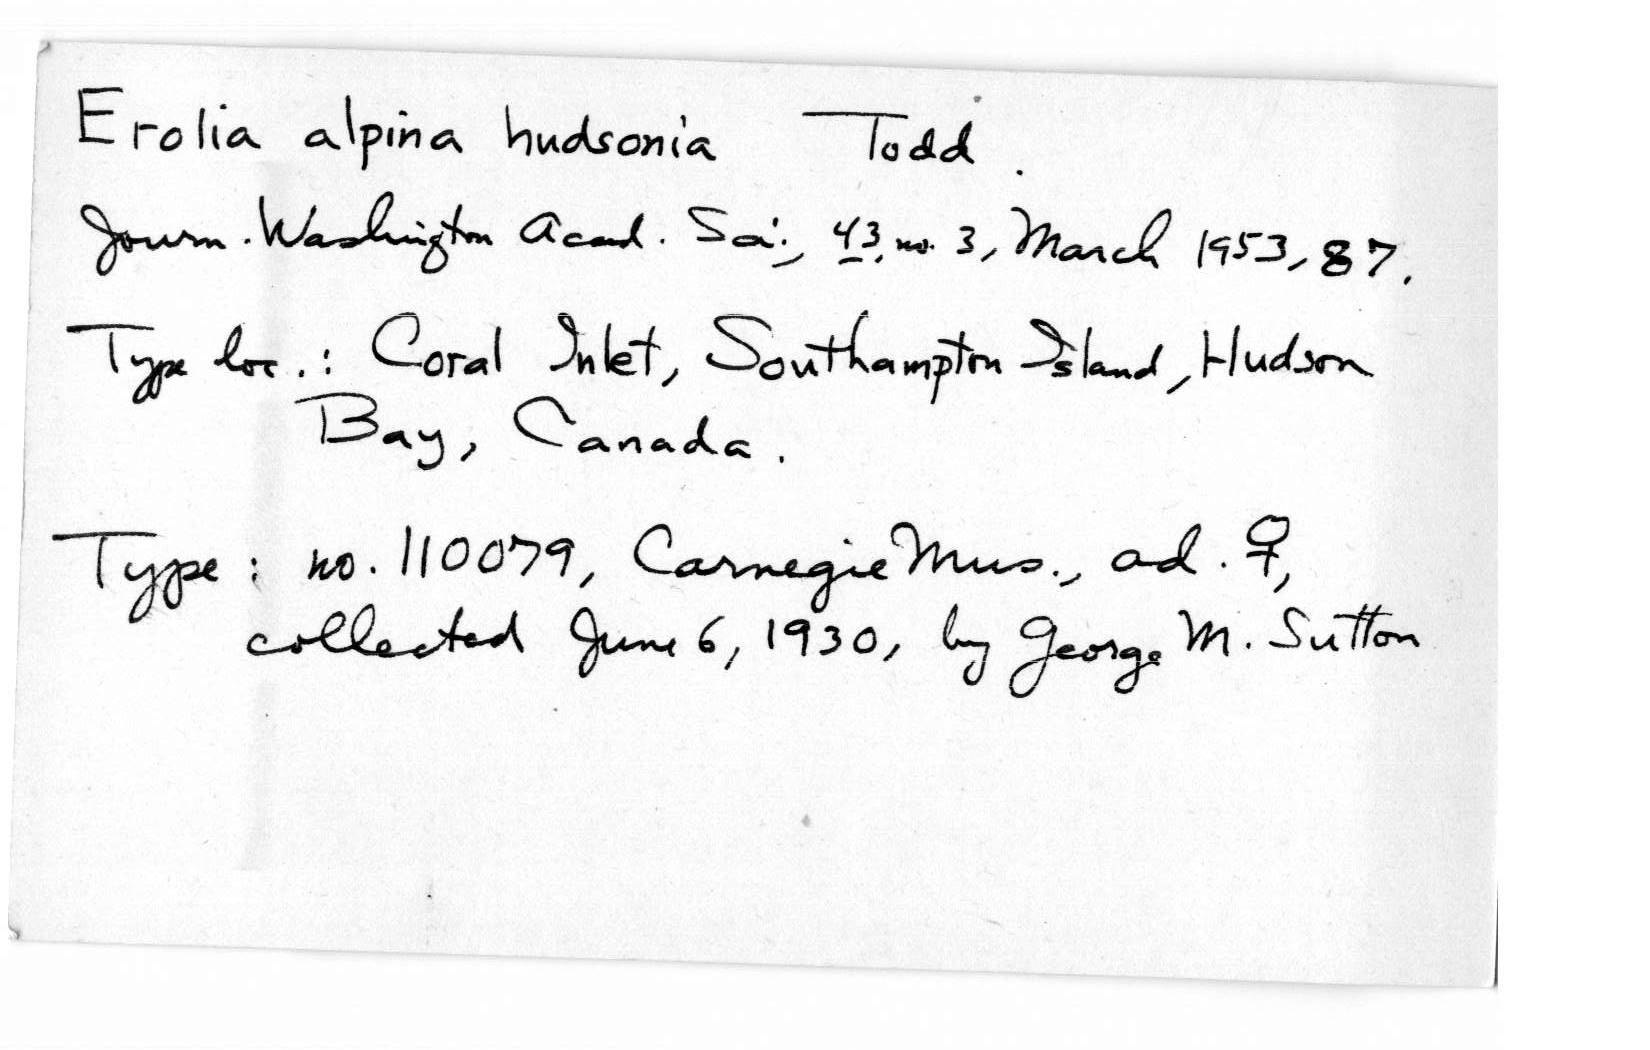 Erolia alpina hudsonia Todd.
Journ. Washington Acad. Sci., 43, no. 3, March 1953, 87.
Type loc.: Coral Inlet, Southampton Island, Hudson
Bay, Canada.
Type: no. 110079, Carnegie Mus., ad. ♀,
collected June 6, 1930, by George M. Sutton